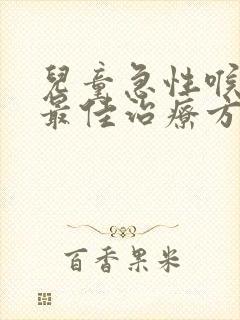 兒童急性喉
最佳治療方
百香果米